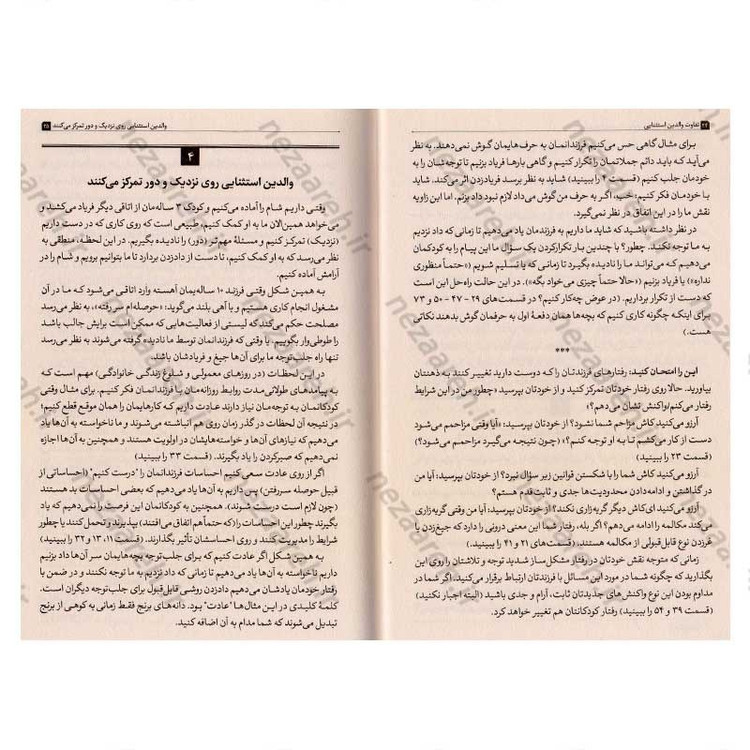 ۲۴ تفاوت والدین استثنایی
برای مثال گاهی حس می‌کنیم فرزندانمان به حرف‌هایمان گوش نمی‌دهند. به نظر
می‌آید که باید دائم جملاتمان را تکرار کنیم و گاهی بارها فریاد بزنیم تا توجه‌شان را به
خودمان جلب کنیم (قسمت ۴ را ببینید) شاید به نظر برسد فریادزدن اثر می‌کند. شاید
با خودمان فکر کنیم: خب، اگر به حرف من گوش می‌داد لازم نبود داد بزنم. اما این زاویه
نقش ما را در این اتفاق در نظر نمی‌گیرد.
در نظر داشته باشید که شاید ما داریم به فرزندمان یاد می‌دهیم تا زمانی که داد نزدیم
به ما توجه نکند. چطور؟ با چندین بار تکرارکردن یک سؤال ما این پیام را به کودکمان
می‌دهیم که می‌تواند ما را نادیده بگیرد تا زمانی که یا تسلیم شویم («حتماً منظوری
نداره») یا فریاد بزنیم («حالا حتماً چیزی می‌خواد بگه»). در این حالت راه‌حل این است
که دست از تکرار برداریم. (در عوض چه‌کار کنیم؟ در قسمت‌های ۲۹ - ۲۷ - ۵۰ و ۷۳
برای اینکه چگونه کاری کنیم که بچه‌ها همان دفعهٔ اول به حرفمان گوش بدهند نکاتی
هست.)
***
این را امتحان کنید: رفتارهای فرزندتان را که دوست دارید تغییر کنند به ذهنتان
بیاورید. حالا روی رفتار خودتان تمرکز کنید و از خودتان بپرسید «چطور من در این شرایط
رفتار می‌کنم/واکنش نشان می‌دهم؟»
آرزو می‌کنید کاش مزاحم شما نشود؟ از خودتان بپرسید: «آیا وقتی مزاحمم می‌شود
دست از کار می‌کشم تا به او توجه کنم؟» (چون نتیجه می‌گیرد مزاحمم می‌شود؟)
(قسمت ۲۳ را ببینید)
آرزو می‌کنید کاش شما را با شکستن قوانین زیر سؤال نبرد؟ از خودتان بپرسید: آیا من
در گذاشتن و ادامه‌دادن محدودیت‌ها جدی و ثابت قدم هستم؟
آرزو می‌کنید ای‌کاش دیگر گریه‌زاری نکند؟ از خودتان بپرسید: آیا من وقتی گریه‌زاری
می‌کند مکالمه را ادامه می‌دهم؟ اگر بله، رفتار شما این معنی درونی را دارد که جیغ‌زدن یا
غرزدن نوع قابل‌قبولی از مکالمه هستند. (قسمت‌های ۲۱ و ۴۱ را ببینید).
زمانی که متوجه نقش خودتان در رفتار مشکل‌ساز شدید توجه و تلاشتان را روی این
بگذارید که چگونه شما در مورد این مسائل با فرزندتان ارتباط برقرار می‌کنید. اگر شما در
مداوم بودن این نوع واکنش‌های جدیدتان ثابت، آرام و جدی باشید (البته اجبار نکنید)
(قسمت ۳۹ و ۵۴ را ببینید) رفتار کودکانتان هم تغییر خواهد کرد.
والدین استثنایی روی نزدیک و دور تمرکز می‌کنند ۲۵
۴
والدین استثنایی روی نزدیک و دور تمرکز می‌کنند
وقتی داریم شام را آماده می‌کنیم و کودک ۳ ساله‌مان از اتاقی دیگر فریاد می‌کشد و
می‌خواهد همین‌الان ما به او کمک کنیم، طبیعی است که روی کاری که در دست داریم
(نزدیک) تمرکز کنیم و مسئلهٔ مهم‌تر (دور) را نادیده بگیریم. در این لحظه، منطقی به
نظر می‌رسد که به او کمک کنیم، تا دست از دادزدن بردارد تا ما بتوانیم برویم و شام را در
آرامش آماده کنیم.
به همین شکل وقتی فرزند ۱۰ ساله‌یمان آهسته وارد اتاقی می‌شود که ما در آن
مشغول انجام کاری هستیم و با آهی بلند می‌گوید: «حوصله‌ام سر رفته»، به نظر می‌رسد
مصلحت حکم می‌کند که لیستی از فعالیت‌هایی که ممکن است برایش جالب باشد
را طوطی‌وار بگوییم. یا وقتی که فرزندانمان توسط ما نادیده گرفته می‌شوند به نظر می‌رسد
تنها راه جلب‌توجه ما برای آن‌ها جیغ و فریادشان باشد.
در این لحظات (در روزهای معمولی و شلوغ زندگی خانوادگی) مهم است که
به پیامدهای طولانی‌مدت روابط روزانه‌مان با فرزندانمان فکر کنیم. برای مثال وقتی
کودکانمان به توجه‌مان نیاز دارند عادت داریم که کارهایمان را همان موقع قطع کنیم؛
در نتیجه آن لحظات در گذر زمان روی هم انباشته می‌شوند و ما ناخواسته به آن‌ها یاد
می‌دهیم که نیازهای آن‌ها و خواسته‌هایشان در اولویت هستند و همچنین به آن‌ها اجازه
نمی‌دهیم که صبرکردن را یاد بگیرند. (قسمت ۳۳ را ببینید)
اگر از روی عادت سعی کنیم احساسات فرزندانمان را "درست کنیم" (احساساتی از
قبیل حوصله سررفتن) پس داریم به آن‌ها یاد می‌دهیم که بعضی احساسات بد هستند
(چون لازم است درست شوند)، همچنین به کودکانمان این فرصت را نمی‌دهیم که یاد
بگیرند چطور این احساسات را (که حتماً هم اتفاق می‌افتند) بپذیرند و تحمل کنند یا چطور
شرایط را مدیریت کنند و روی احساسشان تأثیر بگذارند. (قسمت ۱۱، ۱۳ و ۳۲ را ببینید)
به همین شکل اگر عادت کنیم که برای جلب‌توجه بچه‌هایمان سر آن‌ها داد بزنیم
داریم ناخواسته به آن‌ها یاد می‌دهیم تا زمانی که داد نزدیم به ما توجه نکنند و در ضمن با
رفتار خودمان یادشان می‌دهیم دادزدن روشی قابل‌قبول برای جلب‌توجه دیگران است.
کلمهٔ کلیدی در این مثال‌ها "عادت" بود. دانه‌های برنج فقط زمانی به کوهی از برنج
تبدیل می‌شوند که شما مدام به آن اضافه کنید.
nezaareh.ir
nezaareh.ir
nezaareh.ir
nezaareh.ir